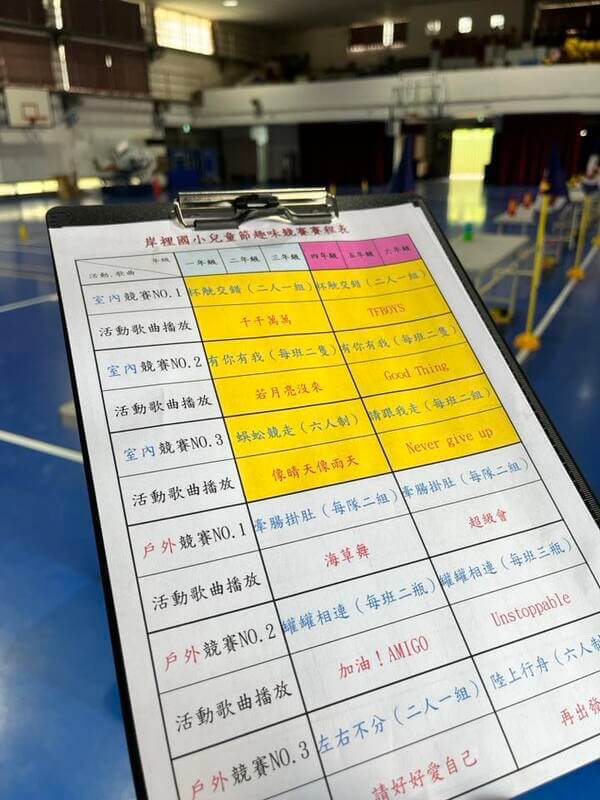 岸裡國小兒童節趣味競賽賽程表
年級 一年級 二年級 三年級 四年級 五年級 六年級
活動.歌曲
室內競賽NO.1 杯觥交錯(二人一組) 杯觥交錯(二人一組)
活動歌曲播放 千千萬萬 TFBOYS
室內競賽NO.2 有你有我(每班二隻) 有你有我(每班二隻)
活動歌曲播放 若月亮沒來 Good Thing
室內競賽NO.3 蜈蚣競走(六人制) 請跟我走(每班二組)
活動歌曲播放 像晴天像雨天 Never give up
戶外競賽NO.1 牽腸掛肚(每隊二組) 牽腸掛肚(每隊二組)
活動歌曲播放 海草舞 超級會
戶外競賽NO.2 罐罐相連(每班二瓶) 罐罐相連(每班三瓶)
活動歌曲播放 加油!AMIGO Unstoppable
戶外競賽NO.3 左右不分(二人一組) 陸上行舟(六人制
請好好愛自己 再出發